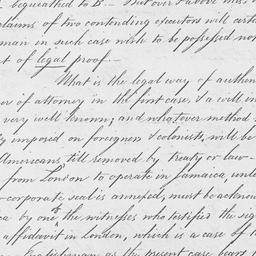 bequeathed to B
claims of two contending executors will
man in such case wish to be possessed
t of legal proof.
What is the legal way of authen
er of attorney in the first case, & a will in
very well known; and whatever method
ly imposed on foreigners & colonists, will be
Americans, till removed by treaty or law
from London to operate in Jamaica, unle
corporate seal is annexed, must be acknow
ca by one of the witnesses who testified the sig
affidavit in London, which is a case of
as the present case bears